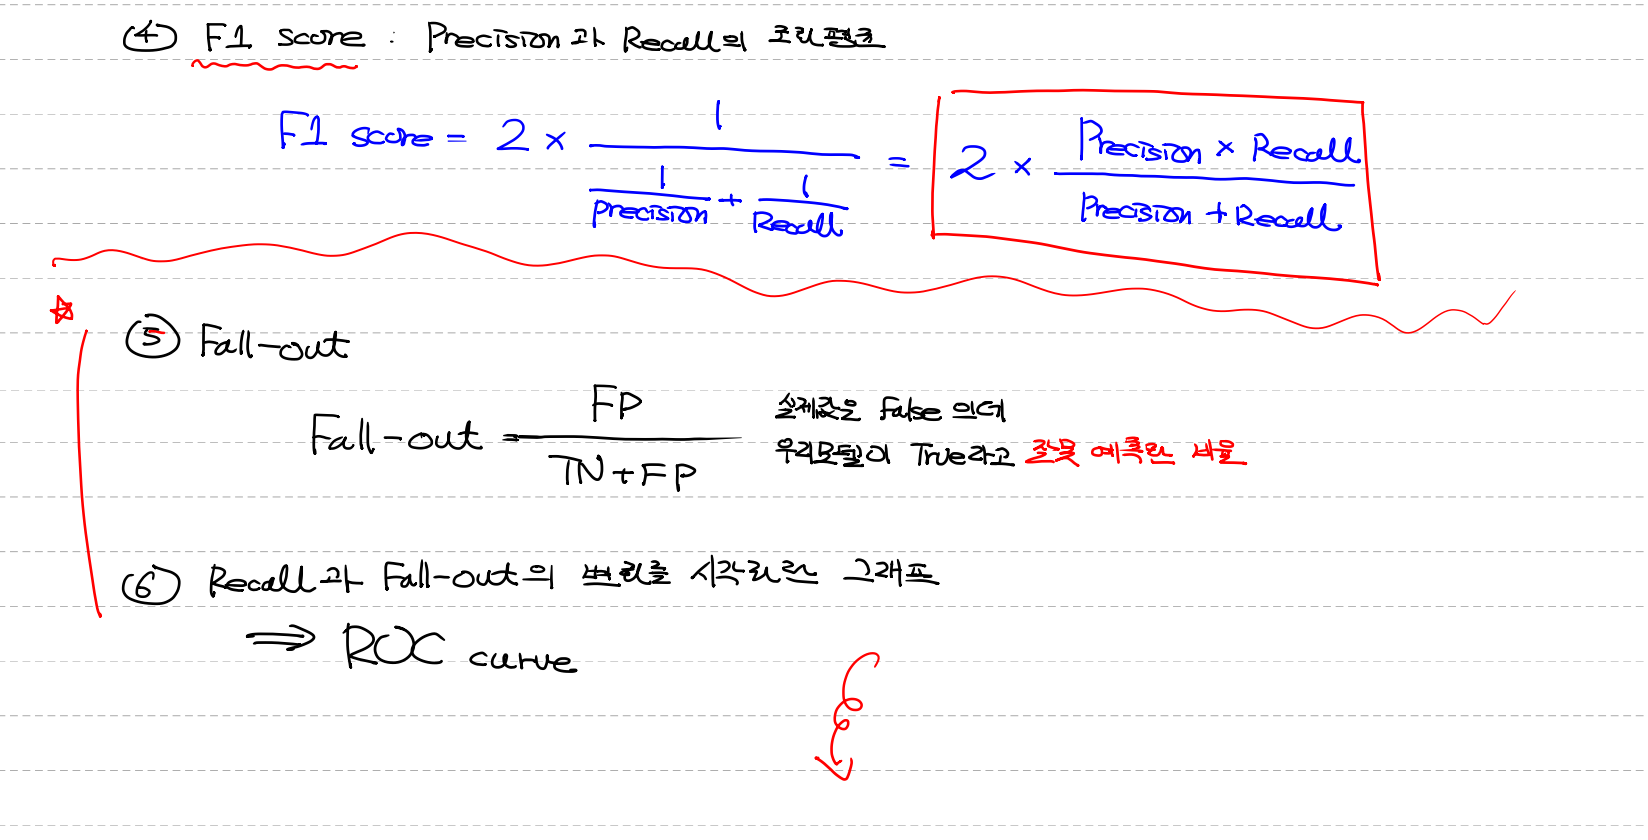 ④ F1 score : Precision과 Recall의 조화평균
F1 score = 2 × 1 / (1/precision + 1/Recall) = 2 × (Precision × Recall) / (Precision + Recall)
☆
⑤ Fall-out
Fall-out = FP / (TN + FP)
실제값은 False 인데
우리모델이 True라고 잘못 예측한 비율
⑥ Recall과 Fall-out의 변화를 시각화한 그래프
⇒ ROC curve